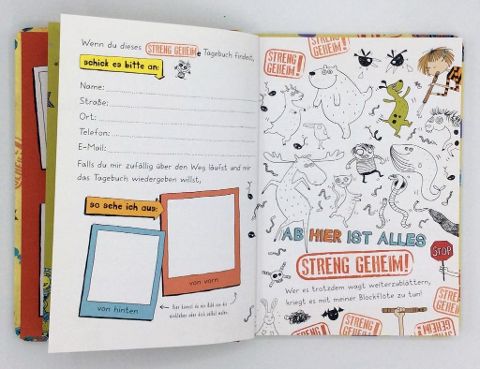 Wenn du dieses STRENG GEHEIMe Tagebuch findest,
schick es bitte an:
Name:
Straße:
Ort:
Telefon:
E-Mail:
Falls du mir zufällig über den Weg läufst und mir
das Tagebuch wiedergeben willst,
so sehe ich aus:
von vorn
von hinten
Hier kannst du ein Bild von dir
einkleben oder dich selbst malen.
STRENG GEHEIM!
STRENG GEHEIM!
STRENG GEHEIM!
AB HIER IST ALLES
STRENG GEHEIM!
STOP
Wer es trotzdem wagt weiterzublättern,
kriegt es mit meiner Blockflöte zu tun!
GEHEIM!